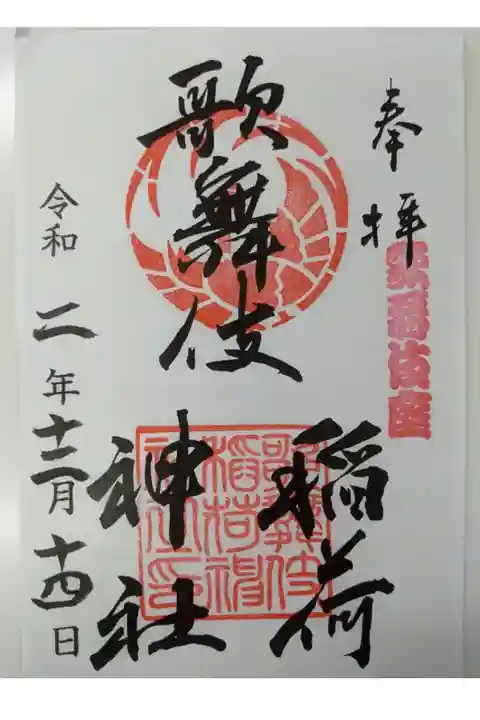 奉拝
歌舞伎座
歌舞伎
稲荷
神社
歌舞伎稲荷神社印
令和二年十二月十四日